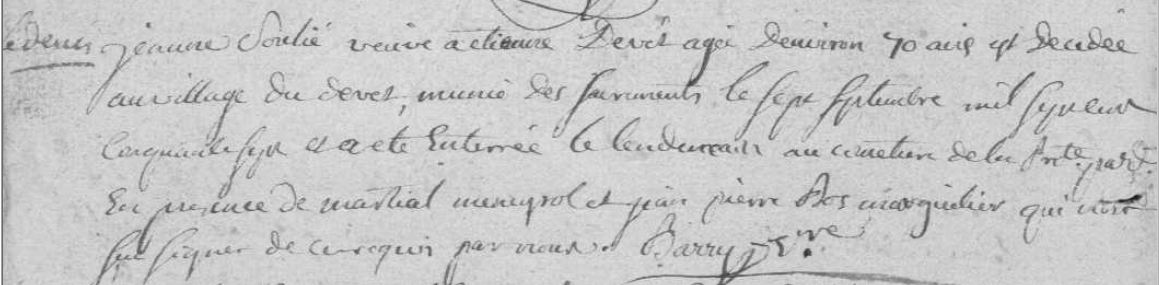 jeanne Soulié veuve a etienne Devét agée denviron 70 ans est decedée
au village du devet, munie des sacrements le sept septembre mil sept cent
cinquante sept et a ete Enterrée le lendemain au cimetiere de la Pnte. parr.
En presence de martial et jean pierre Bos marguilier qui nont
sceu signer de ce requis par nous. Barry vre